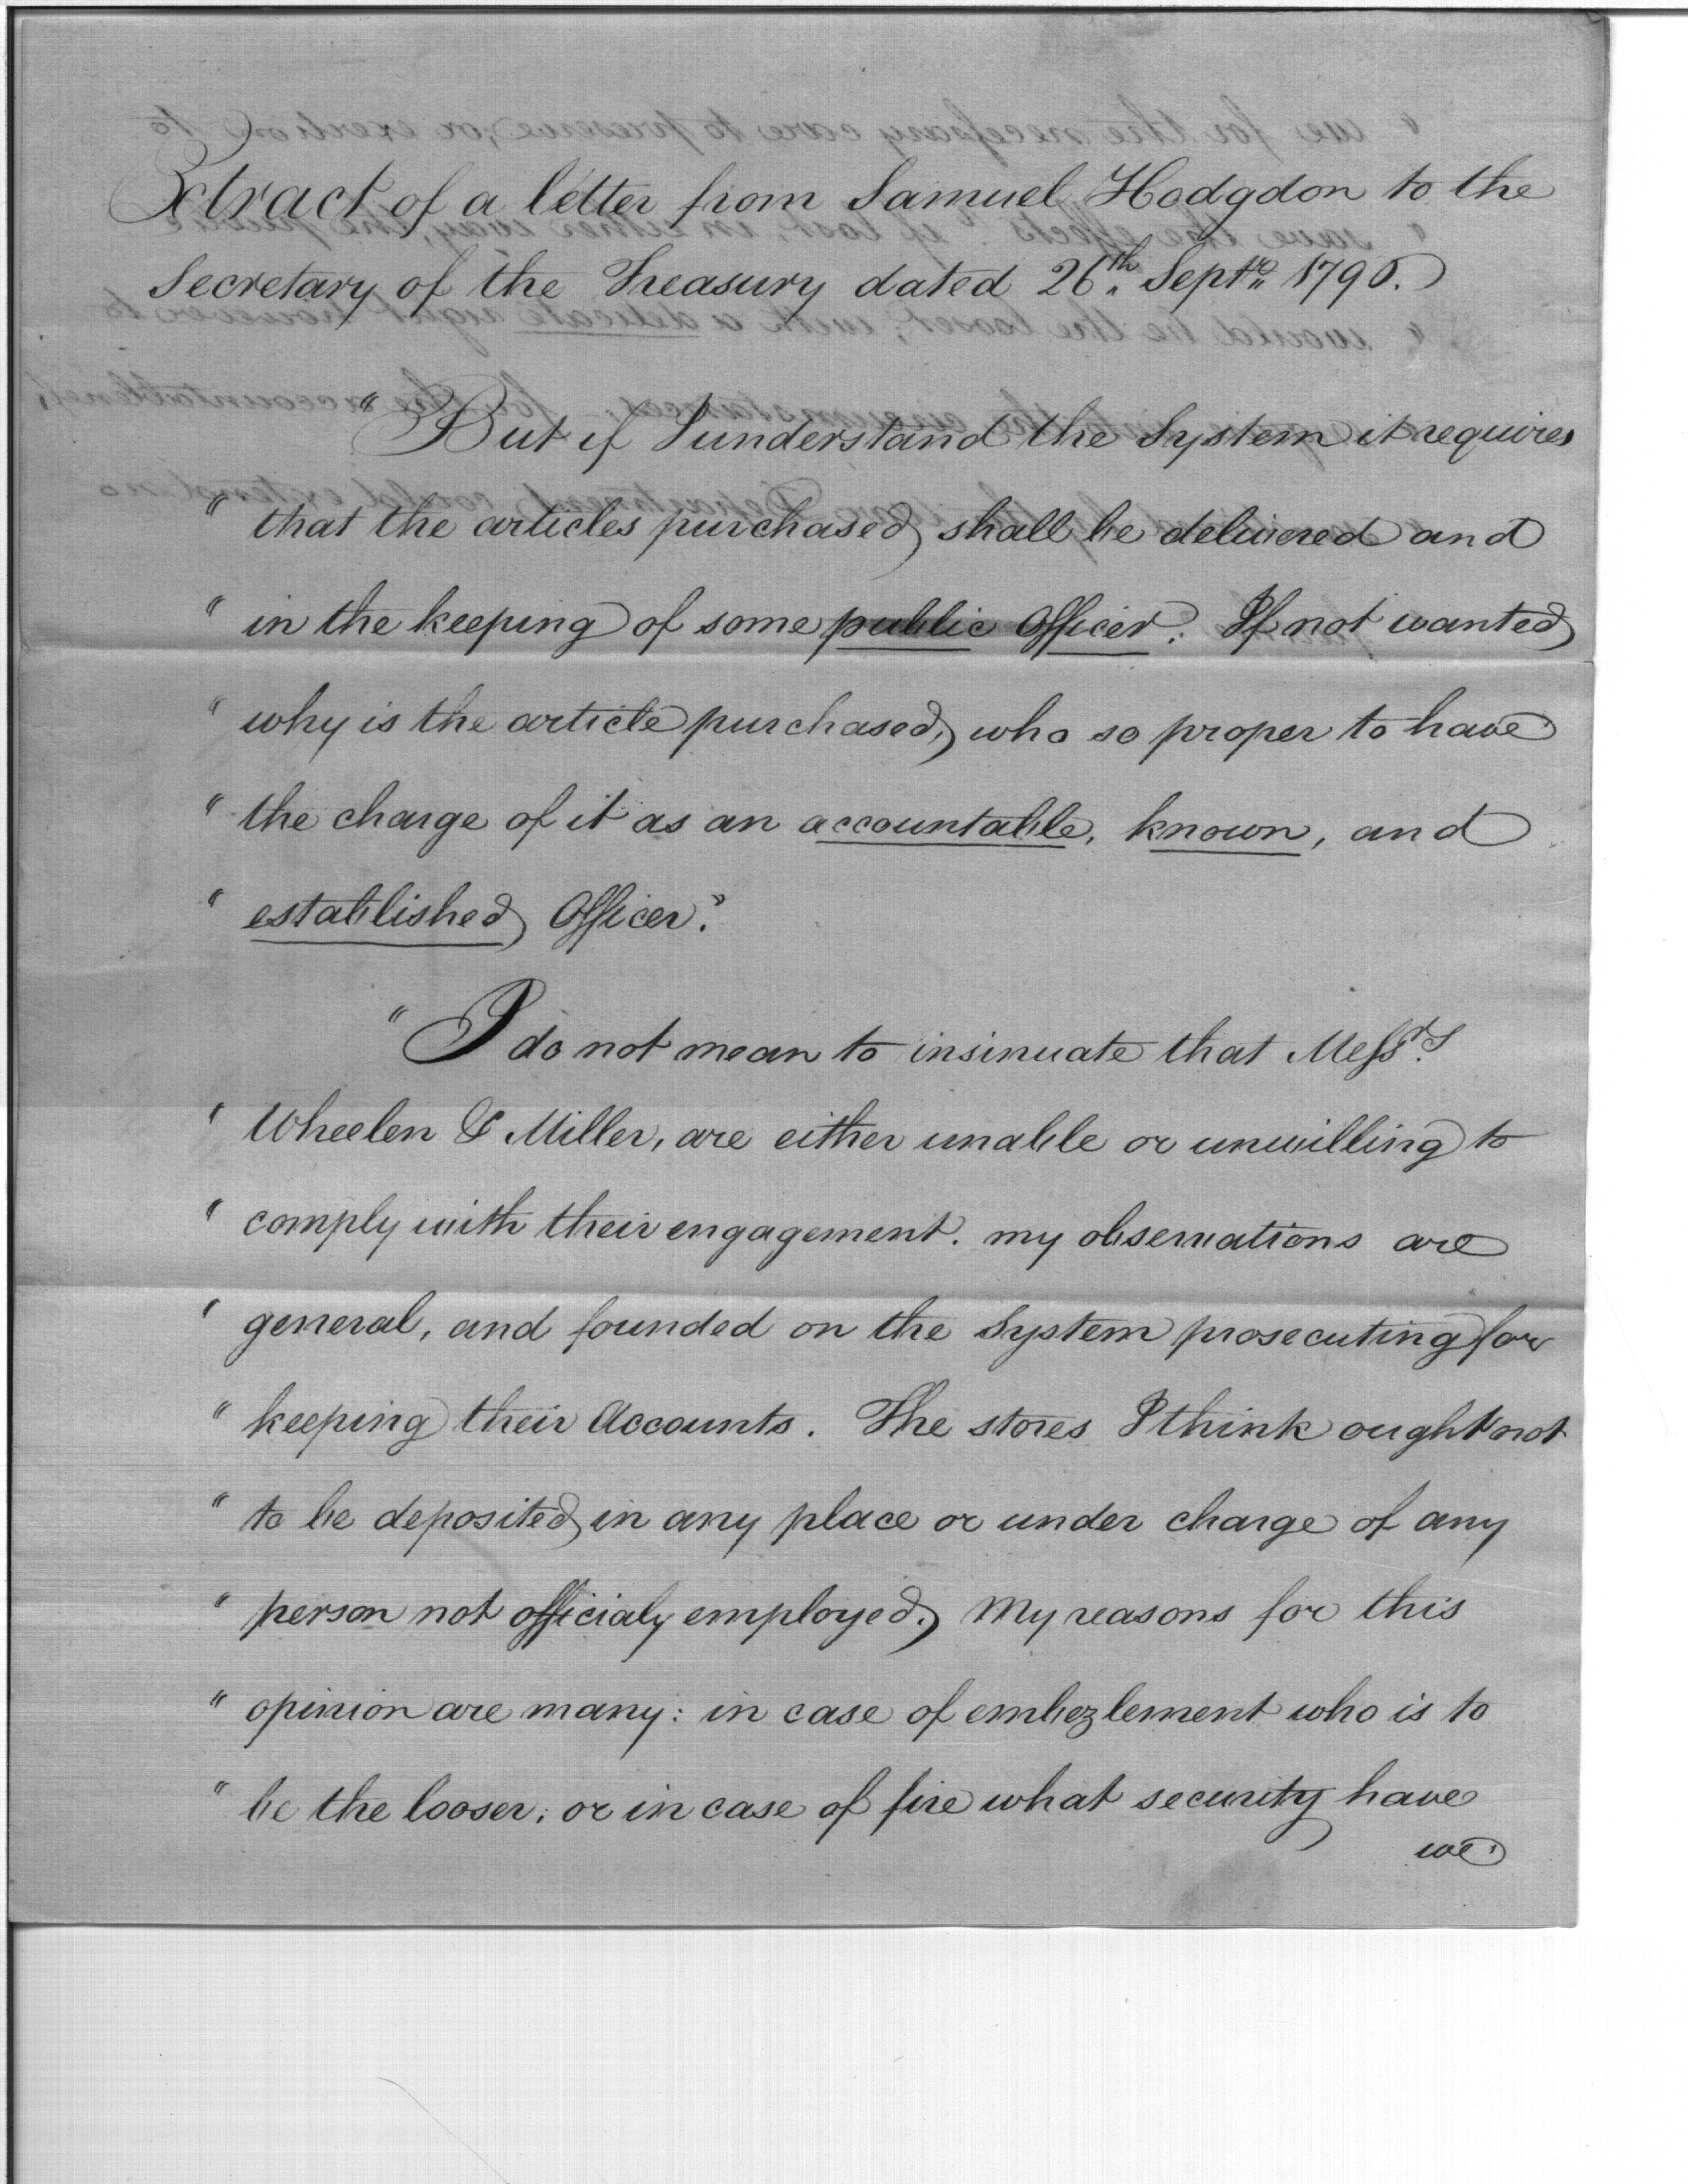 Extract of a letter from Samuel Hodgdon to the
Secretary of the Treasury dated 26th Septr 1795.
"But if I understand the System it requires
" that the articles purchased, shall be delivered and
" in the keeping of some public Officer. If not wanted,
" why is the article purchased, who so proper to have
" the charge of it as an accountable, known, and
" established Officer."
"I do not mean to insinuate that Messrs.
" Wheelen & Miller, are either unable or unwilling to
" comply with their engagement. my observations are
" general, and founded on the System prosecuting for
" keeping their Accounts. The stores I think ought not
" to be deposited, in any place or under charge of any
" person not officialy employed. My reasons for this
" opinion are many: in case of embezlement who is to
" be the looser; or in case of fire what security have
we